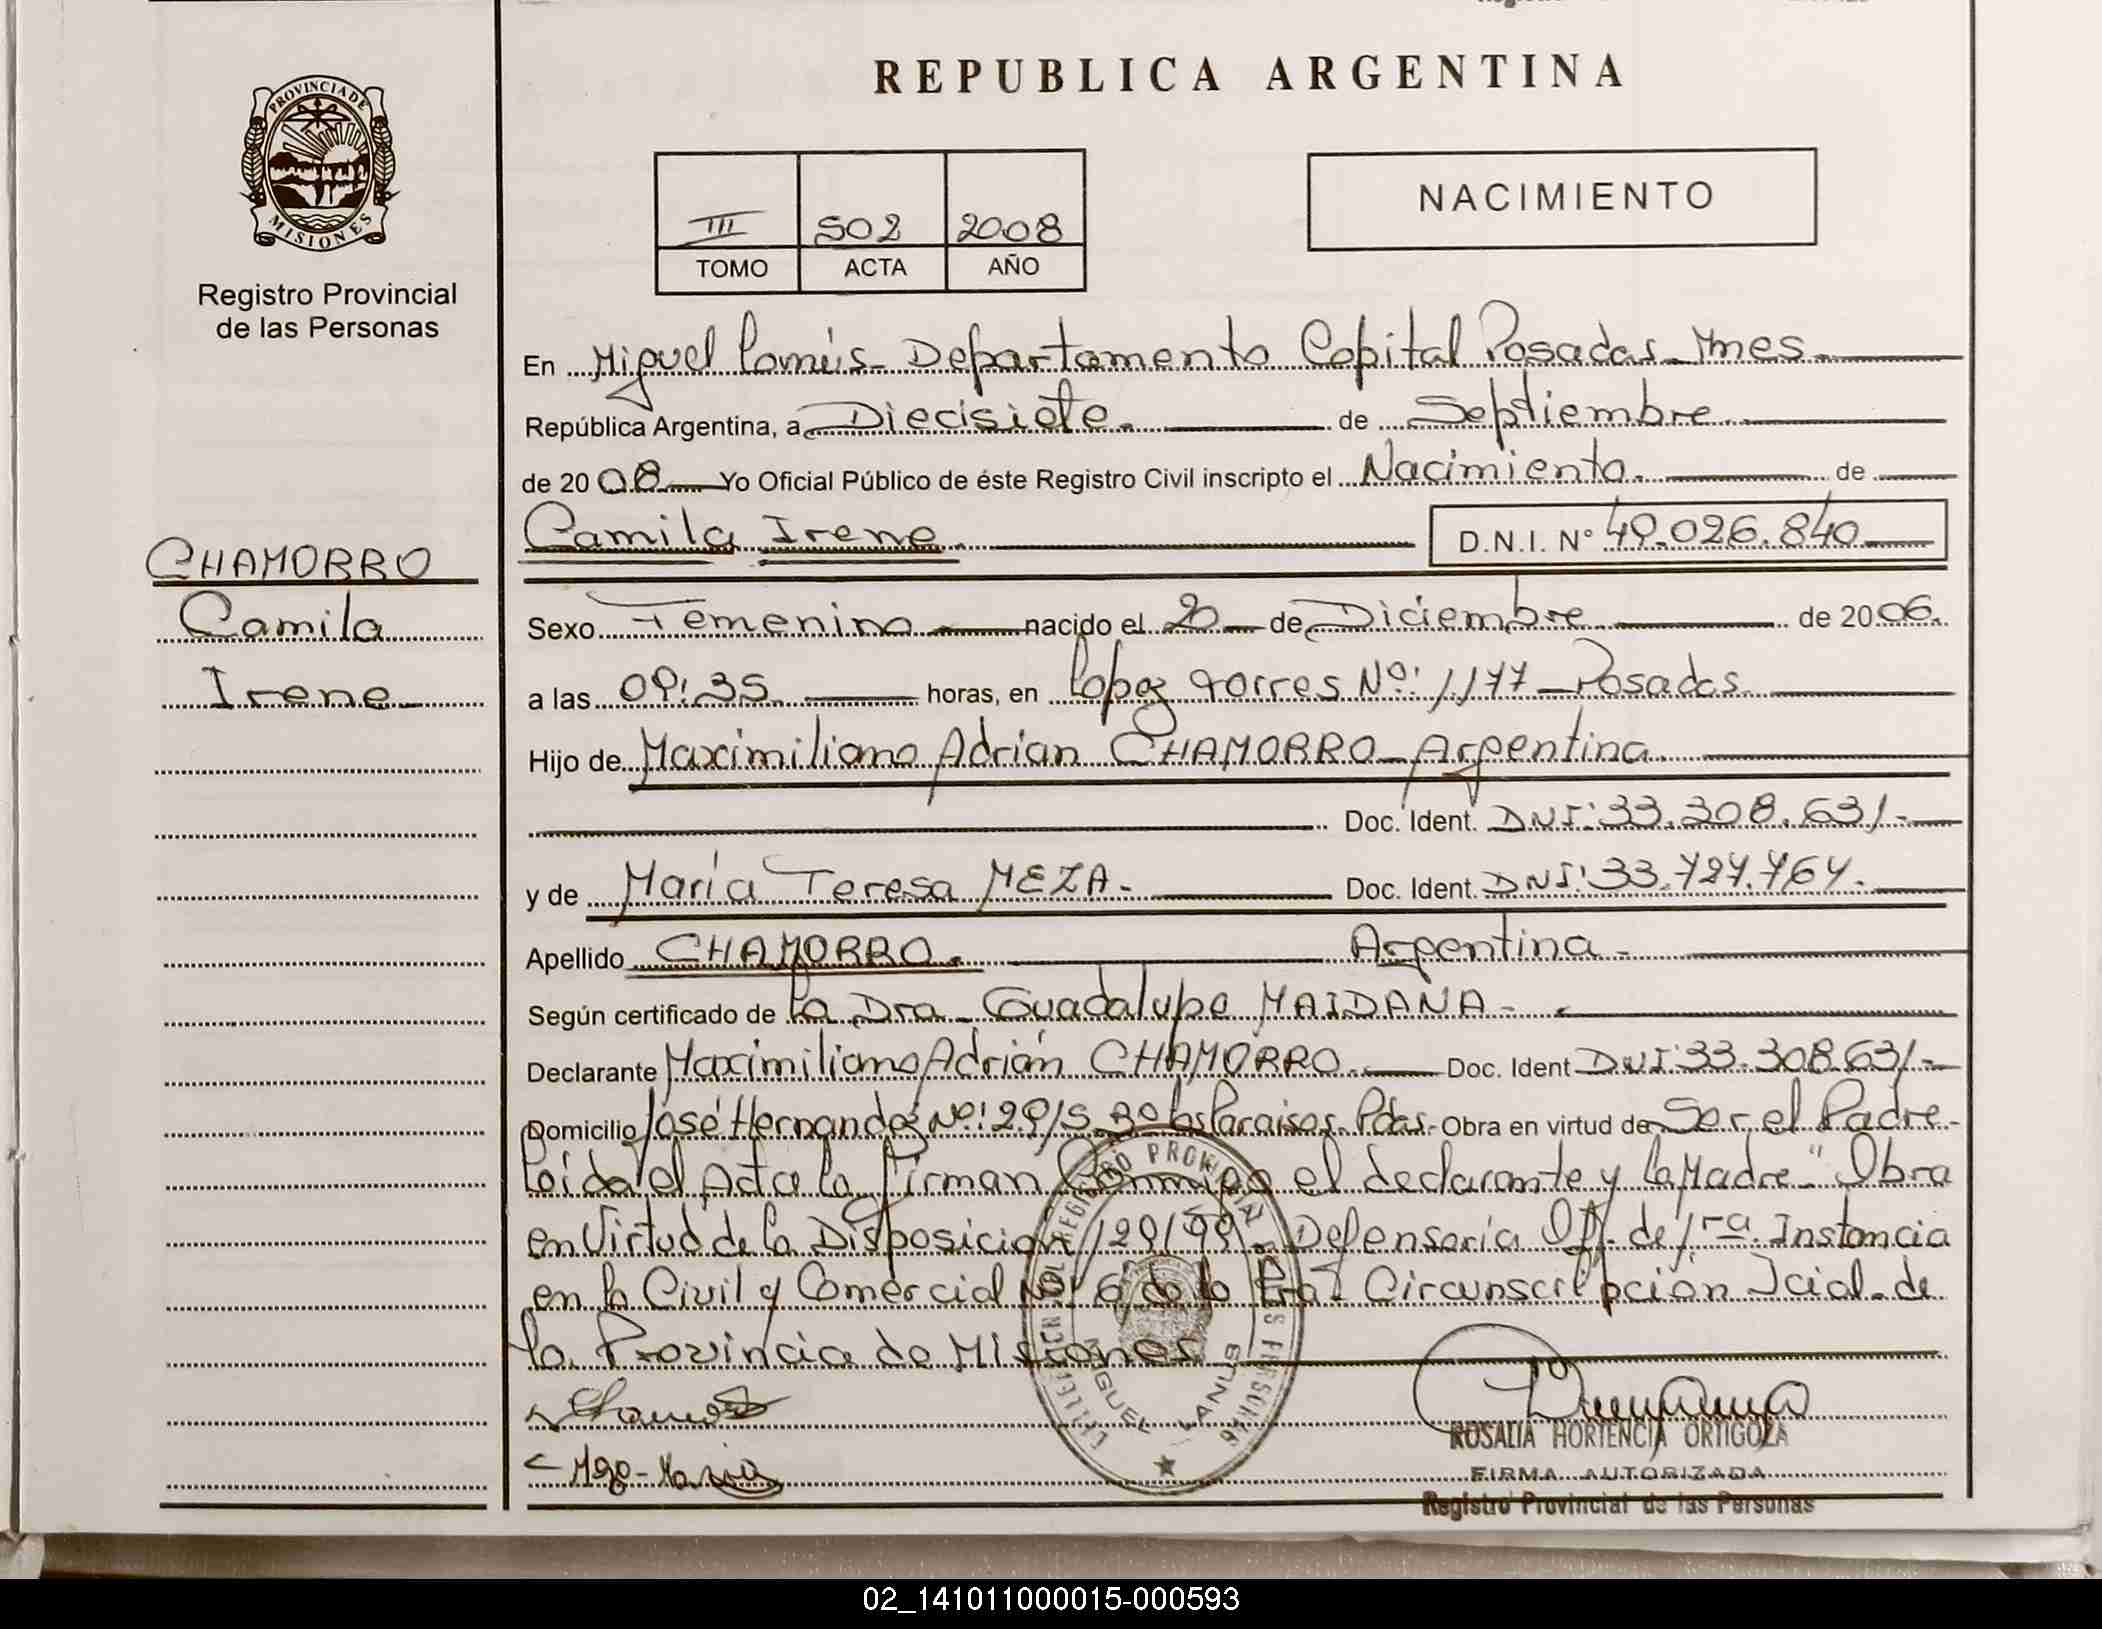 PROVINCIA DE
MISIONES
Registro Provincial
de las Personas
CHAMORRO
Camila
Irene
REPUBLICA ARGENTINA
III 502 2008
TOMO ACTA AÑO
NACIMIENTO
En Miguel Lanús - Departamento Capital Posadas - Mnes
República Argentina, a Diecisiete. de Septiembre
de 2008 Yo Oficial Público de éste Registro Civil inscripto el Nacimiento. de
Camila Irene. D.N.I. N° 49.026.840
Sexo Femenino nacido el 20 de Diciembre de 2006.
a las 09:35 horas, en Lopez Torres Nº: 1177 - Posadas
Hijo de Maximiliano Adrian CHAMORRO - Argentina
Doc. Ident. DNI: 33.308.631-
y de María Teresa MEZA - Doc. Ident. DNI: 33.727.764.
Apellido CHAMORRO. Argentina -
Según certificado de la Dra - Guadalupe MAIDANA -
Declarante Maximiliano Adrián CHAMORRO. Doc. Ident DNI: 33.308.631-
Domicilio José Hernandez Nº: 2915 Bº los Paraisos. Pdas - Obra en virtud de Ser el Padre -
Leida el Acta la firman Conmigo el declarante y la Madre - " Obra
en Virtud de la Disposicion 129/99 - Defensoría Of. de 1ra. Instancia
en lo Civil y Comercial Nº 6 de la Circunscripción Jcial. de
la Provincia de Misiones
MIGUEL LANUS
ROSALIA HORTENCIA ORTIGOZA
FIRMA AUTORIZADA
Registro Provincial de las Personas
02_141011000015-000593